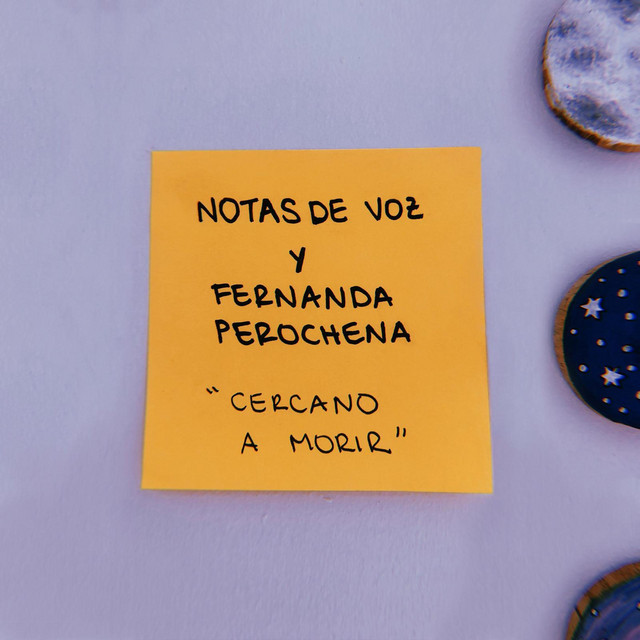 NOTAS DE VOZ
Y
FERNANDA
PEROCHENA
"CERCANO
A MORIR"